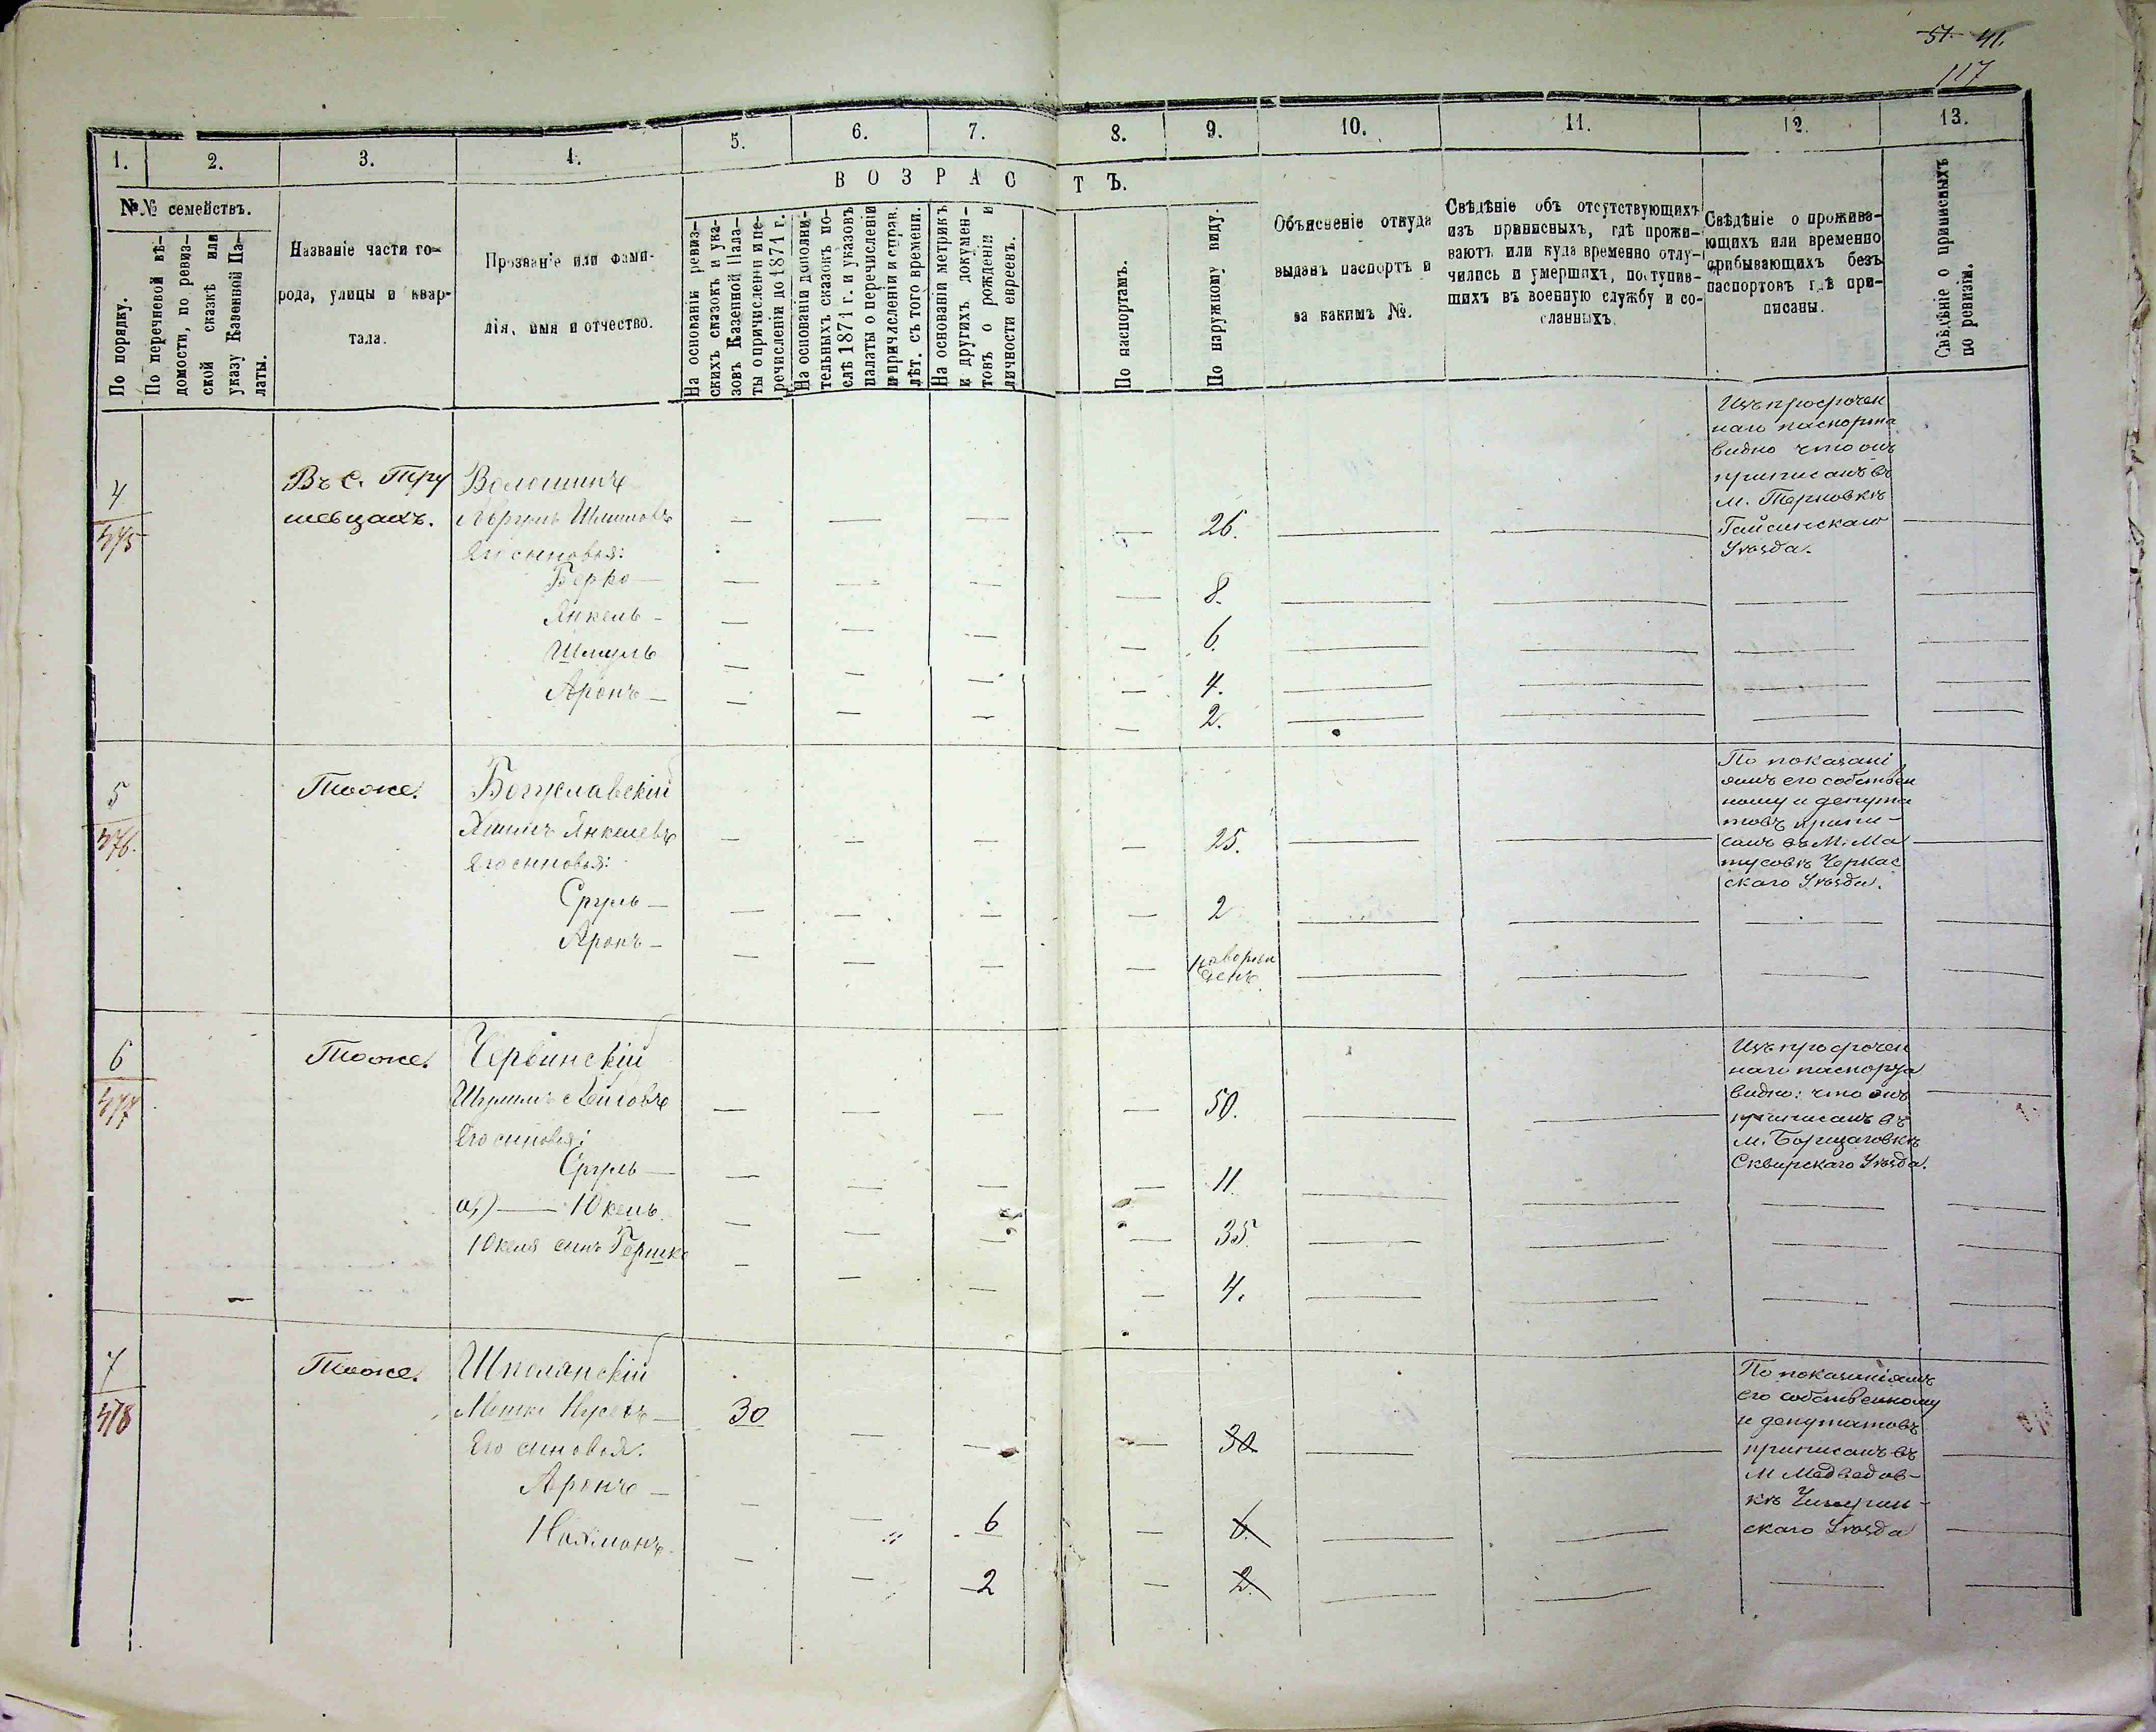 51. 41.
117
1.
2.
3.
4.
5.
6.
7.
8.
9.
10.
11.
12.
13.
ВОЗРАСТЪ.
№№ семействъ.
По порядку.
По перечневой вѣ-
домости, по ревиз-
ской сказкѣ или
указу Казенной Па-
латы.
Названіе части го-
рода, улицы и квар-
тала.
Прозваніе или фами-
лія, имя и отчество.
На основаніи ревиз-
скихъ сказокъ и ука-
зовъ Казенной Пала-
ты о причисленіи и пе-
речисленіи до 1871 г.
На основаніи дополни-
тельныхъ сказокъ по-
слѣ 1871 г. и указовъ
палаты о перечисленіи
и причисленіи и справ.
лѣт. съ того времени.
На основаніи метрикъ
и другихъ докумен-
товъ о рожденіи и
личности евреевъ.
По паспортамъ.
По наружному виду.
Объясненіе откуда
выданъ паспортъ и
за какимъ №.
Свѣдѣніе объ отсутствующихъ
изъ приписныхъ, гдѣ прожи-
ваютъ или куда временно отлу-
чились и умершихъ, поступив-
шихъ въ военную службу и со-
сланныхъ.
Свѣдѣніе о прожива-
ющихъ или временно
прибывающихъ безъ
паспортовъ гдѣ при-
писаны.
Свѣдѣніе о приписныхъ
по ревизіи.
4
375
Въ с. Тру
шевцахъ.
Волошинъ
Шлиомовъ
Его сыновья:
26.
Берко — 8.
Янкель — 6.
Шмуль 4.
Аронъ — 2.
Изъ просрочен
наго паспорта
видно что онъ
приписанъ въ
м. Терновкѣ
Гайсинскаго
Уѣзда.
5
376.
Тоже.
Богуславскій
Хаимъ Янкелевъ
25.
Его сыновья:
Сруль — 2
Аронъ —
новорож
денъ.
По показані
ямъ его собствен
ному и депута
товъ припи-
санъ въ М. Ма
тусовѣ Черкас
скаго Уѣзда.
6
377
Тоже.
Червинскій
Лейбовъ
50.
Его сыновья:
Сруль — 11.
а,) — Юкель 35.
Юкеля сынъ Гершко
4.
Изъ просрочен
наго паспорта
видно: что онъ
приписанъ въ
м. Борщаговкѣ
Сквирскаго Уѣзда.
7
378
Тоже.
Шполянскій
Мошко Нусевъ — 30 30
Его сыновья:
Аронъ — 6 6.
Нахманъ 2 2.
По показаніямъ
его собственному
и депутатовъ
приписанъ въ
М Медведов-
кѣ Чигирин-
скаго Уѣзда